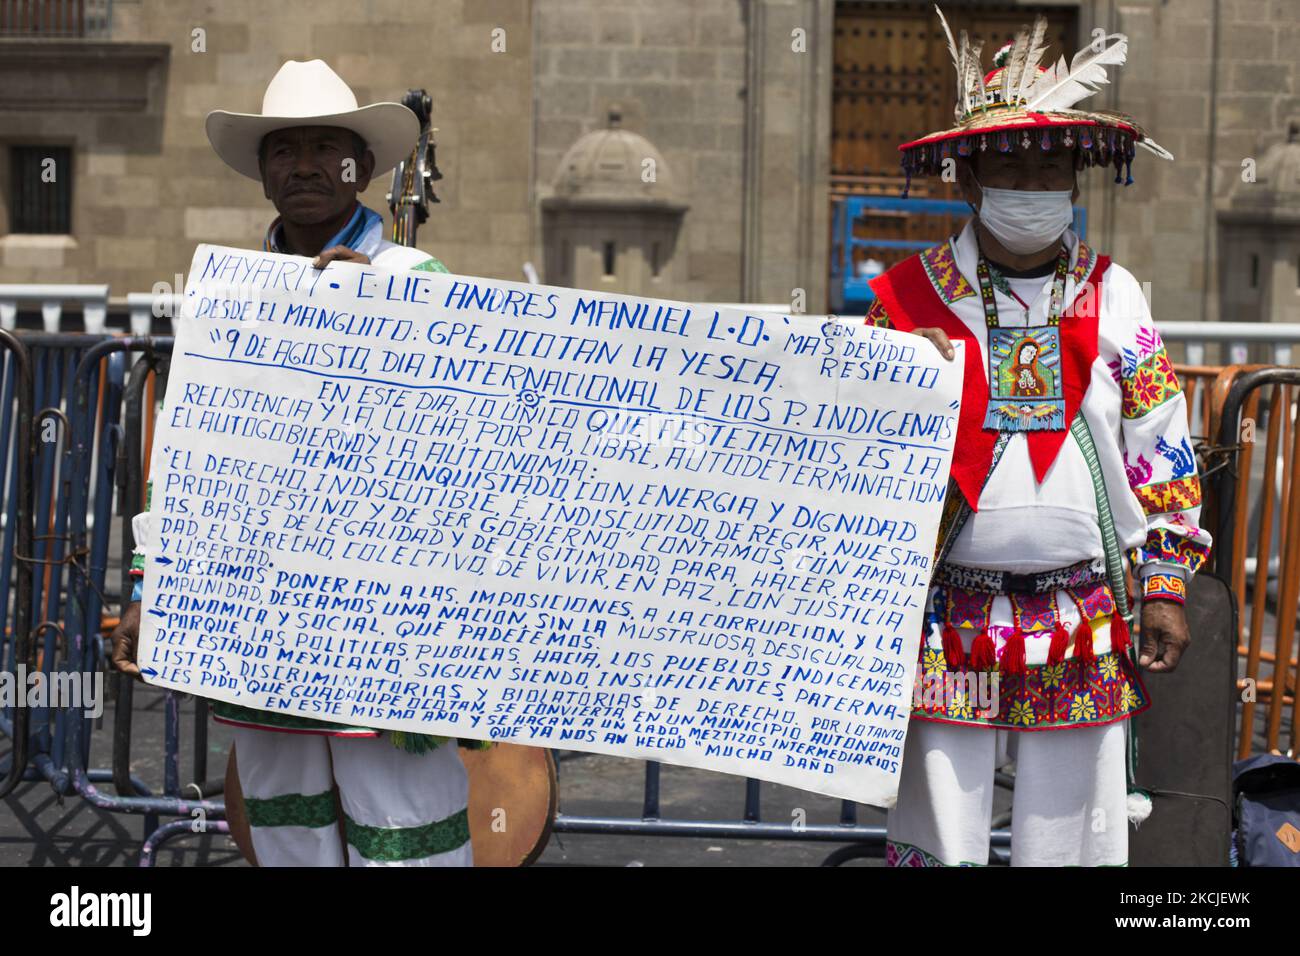 NAYARIT. C LIC ANDRES MANUEL L.O.
"CON EL MAS DEVIDO RESPETO
"DESDE EL MANGUITO: GPE, OCOTAN LA YESCA.
"9 DE AGOSTO, DIA INTERNACIONAL DE LOS P. INDIGENAS"
EN ESTE DIA, LO ÚNICO QUE FESTEJAMOS, ES "LA
RECISTENCIA Y LA LUCHA, POR LA, LIBRE, AUTODETERMINACION
EL AUTOGOBIERNO Y LA AUTONOMIA:
HEMOS CONQUISTADO, CON, ENERGIA Y DIGNIDAD
"EL DERECHO, INDISCUTIBLE, E, INDISCUTIDO, DE REGIR, NUESTRO,
PROPIO, DESTINO Y DE SER GOBIERNO" CONTAMOS, CON, AMPLI-
AS, BASES DE LEGALIDAD Y DE LEGITIMIDAD, PARA, HACER, REALI-
DAD, EL DERECHO, COLECTIVO, DE VIVIR, EN PAZ, CON JUSTICIA
Y LIBERTAD.
→DESEAMOS PONER FIN A LAS, IMPOSICIONES, A LA CORRUPCION, Y LA
IMPUNIDAD, DESEAMOS UNA NACION SIN LA MUSTRUOSA, DESIGUALDAD
ECONOMICA Y SOCIAL. QUE PADECEMOS.
→PORQUE, LAS POLITICAS, PUBLICAS, HACIA, LOS PUEBLOS INDIGENAS
DEL ESTADO MEXICANO, SIGUEN SIENDO, INSUFICIENTES, PATERNA-
LISTAS, DISCRIMINATORIAS Y BIOLATORIAS DE DERECHO. POR LO TANTO
LES PIDO, QUE GUADALUPE OCOTAN, SE CONVIERTA, EN UN MUNICIPIO AUTÓNOMO
EN ESTE MISMO AÑO Y SE HACAN A UN LADO, MEZTIZOS INTERMEDIARIOS
QUE YA NOS AN HECHO "MUCHO DAÑO
alamy
Image ID: 2KCJEWK
www.alamy.com